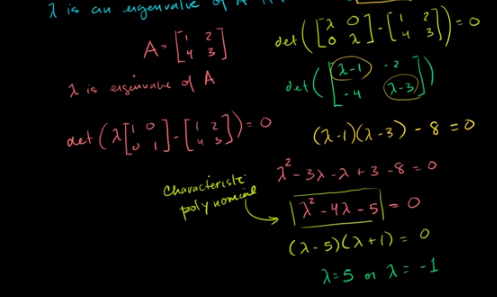 λ is an eigenvalue of A
A = [1 2; 4 3]
λ is eigenvalue of A
det(λ[1 0; 0 1] - [1 2; 4 3]) = 0
det([λ 0; 0 λ] - [1 2; 4 3]) = 0
det([λ-1 -2; -4 λ-3])
(λ-1)(λ-3) - 8 = 0
λ² - 3λ - λ + 3 - 8 = 0
characteristic
polynomial
λ² - 4λ - 5 = 0
(λ-5)(λ+1) = 0
λ=5 or λ = -1